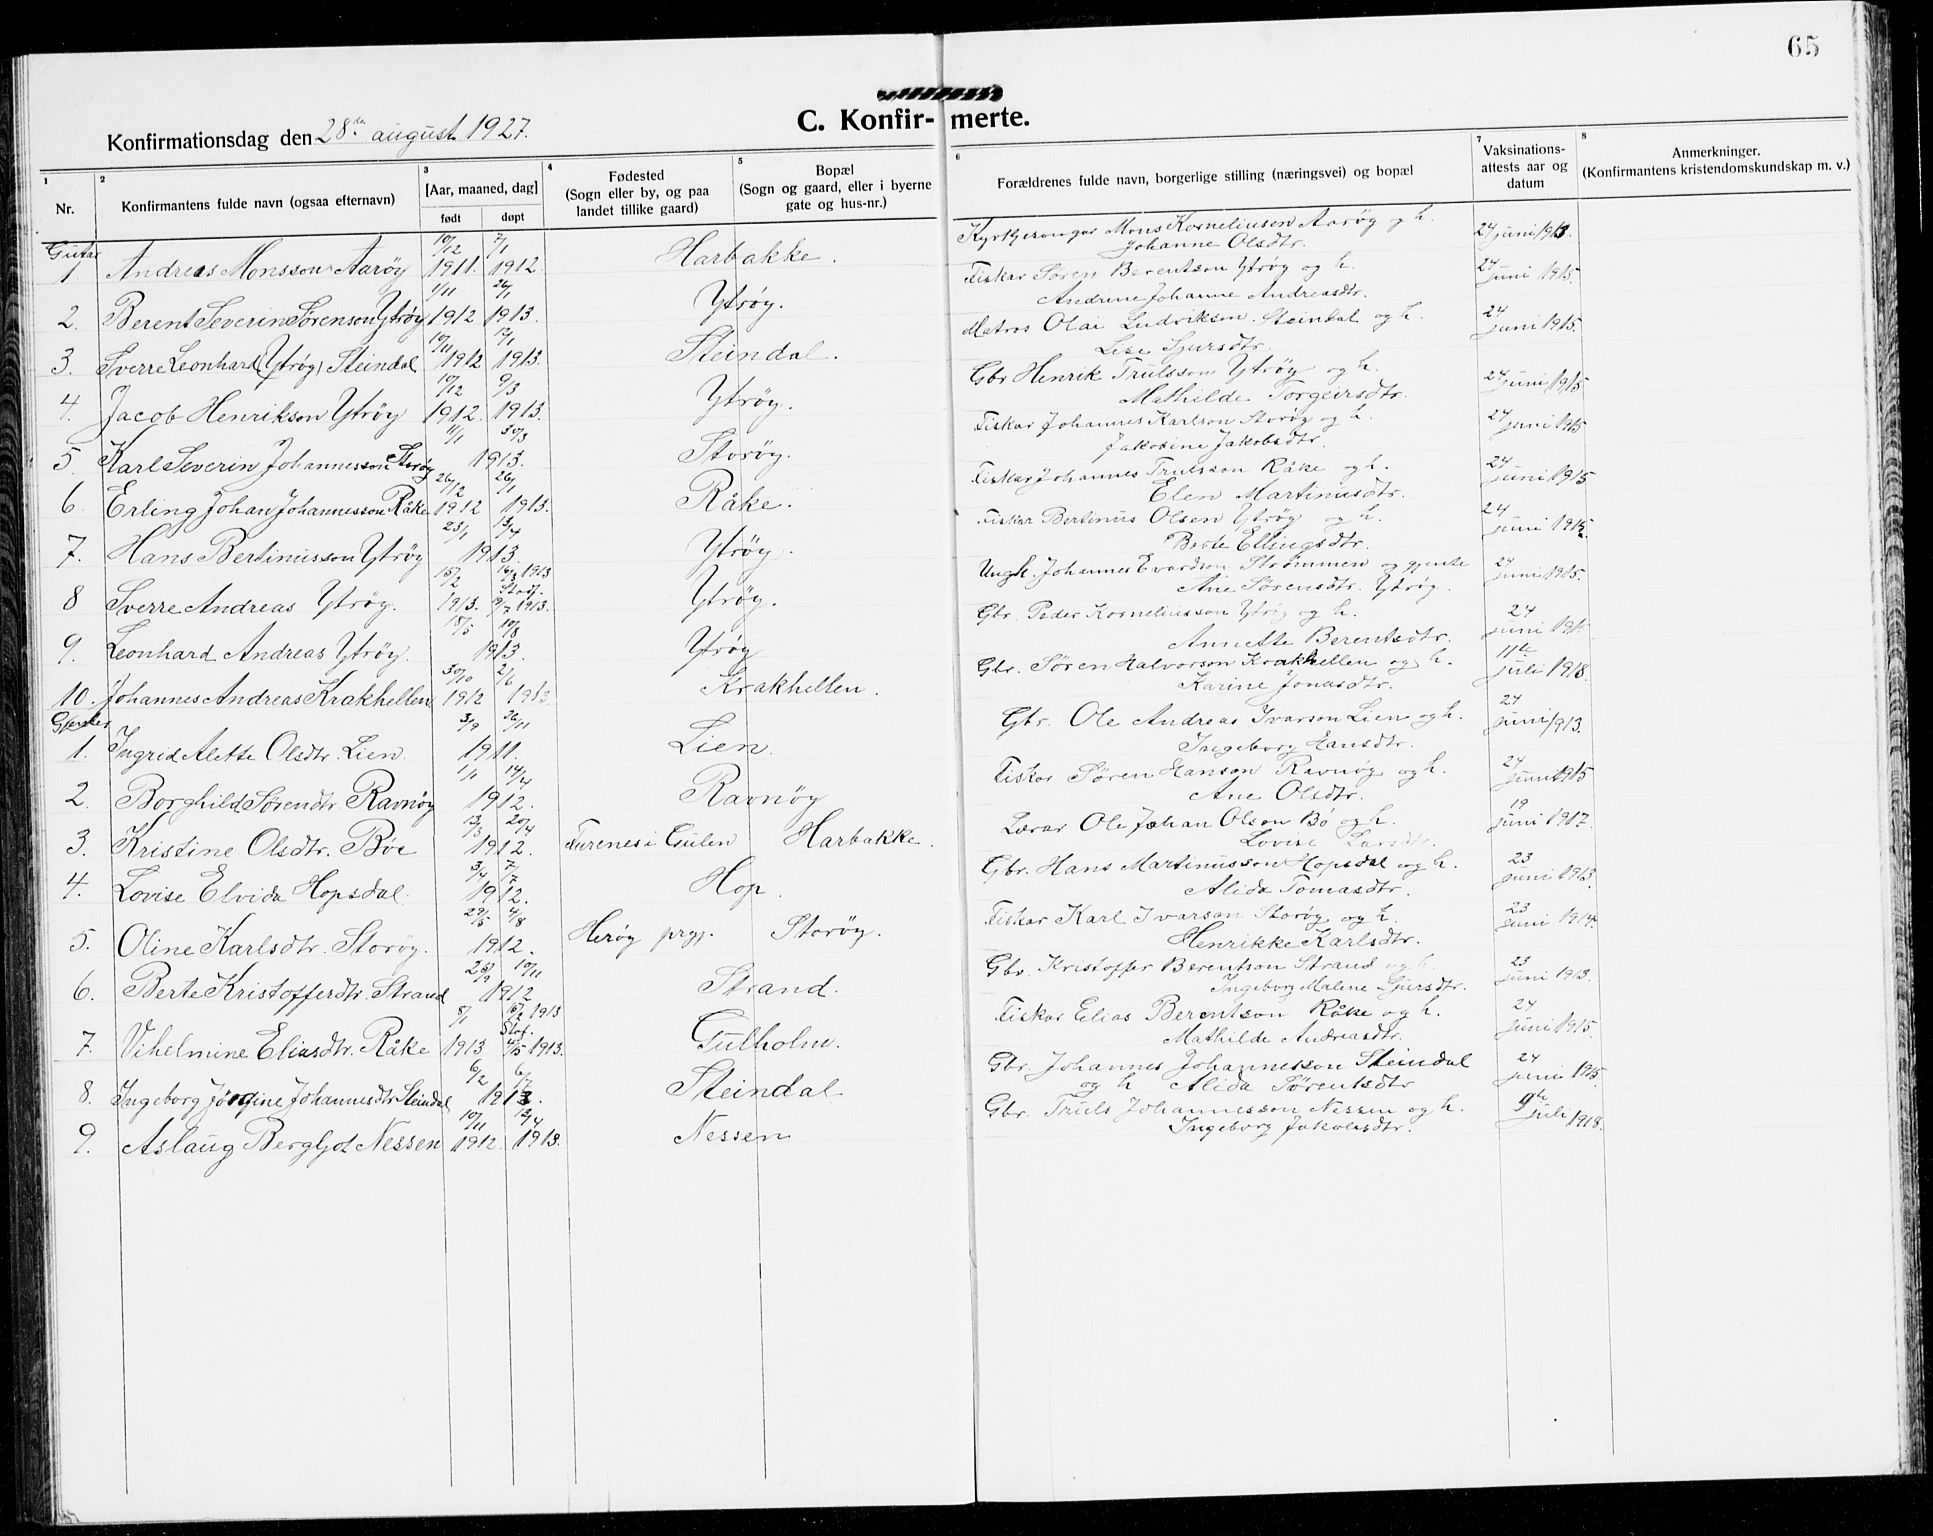 65
C. Konfir- merte.
Konfirmationsdag den 28de august 1927.
1 2 3 4 5 6 7 8
Nr. Konfirmantens fulde navn (ogsaa efternavn) [Aar, maaned, dag] født døpt Fødested (Sogn eller by, og paa landet tillike gaard) Bopæl (Sogn og gaard, eller i byerne gate og hus-nr.) Forældrenes fulde navn, borgerlige stilling (næringsvei) og bopæl Vaksinations-attests aar og datum Anmerkninger. (Konfirmantens kristendomskundskap m. v.)
Gutar
1 Andreas Monsson Aarøy 10/12 1911. 7/1 1912. Harbakke. Kyrkjesongar Mons Korneliusen Aarøy og h. Johanne Olsdtr. 24 juni 1913.
2. Berent Severin Sørenson Ytrøy 1/11 1912 26/1 1913. Ytrøy. Fiskar Søren Berentson Ytrøy og h. Andrine Johanne Andreasdtr. 24 juni 1915.
3. Sverre Leonhard (Ytrøy) Steindal 10/11 1912 12/1 1913. Steindal. Matros Olai Ludvikson Steindal og h. Lise Sjursdtr. 24 juni 1915.
4. Jacob Henrikson Ytrøy 10/12 1912. 9/3 1913. Ytrøy. Gbr Henrik Trulsson Ytrøy og h. Mathilde Torgeirsdtr. 24 juni 1915
5. Karl Severin Johannesson Storøy 11/1 30/3 1913. Storøy. Fiskar Johannes Karlson Storøy og h. Jakobine Jakobsdtr. 24 juni 1915
6. Erling Johan Johannesson Råke 26/12 1912 26/1 1913. Råke. Fiskar Johannes Trulsson Råke og h. Elen Martinusdtr. 24 juni 1915
7. Hans Bertinusson Ytrøy 23/1 13/4 1913 Ytrøy. Fiskar Bertinus Olsen Ytrøy og h. Berte Ellingsdtr. 24 juni 1915.
8 Sverre Andreas Ytrøy. 15/2 1913. 16/2 1913 Stadf. 9/7 1913. Ytrøy. Ungk. Johannes Evardson Strømmen og gjente Ane Sørensdtr. Ytrøy. 24 juni 1915.
9. Leonhard Andreas Ytrøy. 18/5 10/8 1913. Ytrøy Gbr. Peder Korneliusson Ytrøy og h. Annette Berentsdtr. 24 juni
10. Johannes Andreas Krakhellen 30/10 1912 2/6 1913. Krakhellen. Gbr. Søren Halvorson Krakhellen og h. Karine Jonasdtr. 11te juli 1918.
Gjenter
1. Ingrid Alette Olsdtr. Lien 3/9 26/11 1911. Lien. Gbr. Ole Andreas Ivarson Lien og h. Ingeborg Hansdtr. 24 juni 1913.
2. Borghild Sørendtr. Ravnøy 1/1 14/4 1912. Ravnøy Fiskar Søren Hanson Ravnøy og h. Ane Olsdtr. 24 juni 1915
3. Kristine Olsdtr. Bøe 13/3 20/4 1912. Furenes i Gulen Harbakke. Lærar Ole Johan Olson Bø og h. Lovise Larsdtr. 19 juni 1917.
4. Lovise Elvida Hopsdal. 3/4 7/7 1912. Hop. Gbr. Hans Martinusson Hopsdal og h. Alida Tomasdtr. 23 juni 1913.
5. Oline Karlsdtr. Storøy. 29/5 4/8 1912. Herøy prgj. Storøy. Fiskar Karl Ivarson Storøy og h. Henrikke Karlsdtr. 23 juni 1914.
6. Berte Kristofferdtr. Strand 25/9 10/11 1912 Strand. Gbr. Kristoffer Berentson Strand og h. Ingeborg Malene Sjursdtr. 23 juni 1913.
7. Vihelmine Eliasdtr. Råke 8/1 1913 16/2 1913 Staf. 15/5 1913. Gulholm. Fiskar Elias Berentson Råke og h. Mathilde Andreasdtr. 24 juni 1915.
8. Ingeborg Jørgine Johannesdtr Steindal 6/2 6/7 1913. Steindal Gbr. Johannes Johannesson Steindal og h Alida Sørensdtr 24 juni 1915.
9. Aslaug Bergljot Nessen 10/11 1912. 12/4 1913. Nessen Gbr. Truls Johannesson Nessen og h. Ingeborg Jakobsdtr. 9de juli 1918.